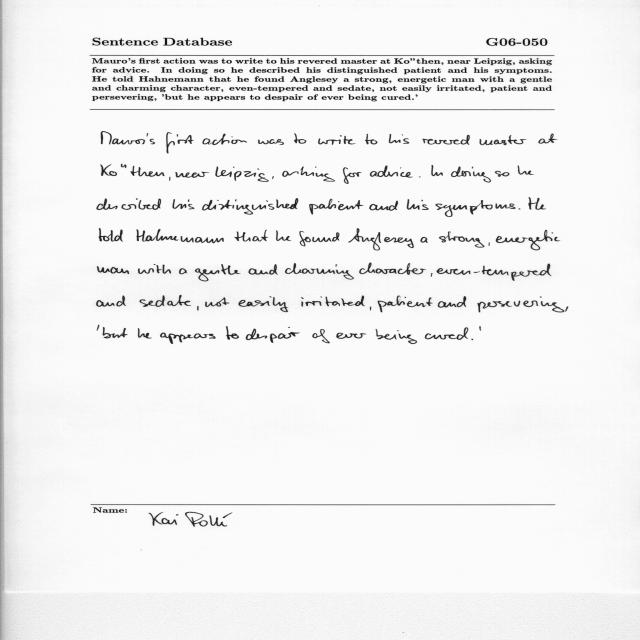 Sentence Database G06-050
Mauro's first action was to write to his revered master at Ko"then, near Leipzig, asking
for advice. In doing so he described his distinguished patient and his symptoms.
He told Hahnemann that he found Anglesey a strong, energetic man with a gentle
and charming character, even-tempered and sedate, not easily irritated, patient and
persevering, 'but he appears to despair of ever being cured.'
Mauro's first action was to write to his revered master at
Ko"then, near Leipzig, asking for advice. In doing so he
described his distinguished patient and his symptoms. He
told Hahnemann that he found Anglesey a strong, energetic
man with a gentle and charming character, even-tempered
and sedate, not easily irritated, patient and persevering,
'but he appears to despair of ever being cured.'
Name:
Kai